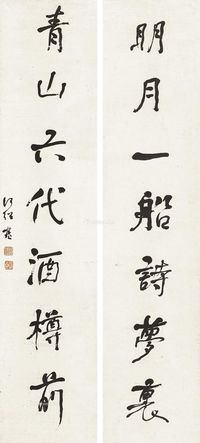 明月一船詩夢裏
青山六代酒樽前
何紹基